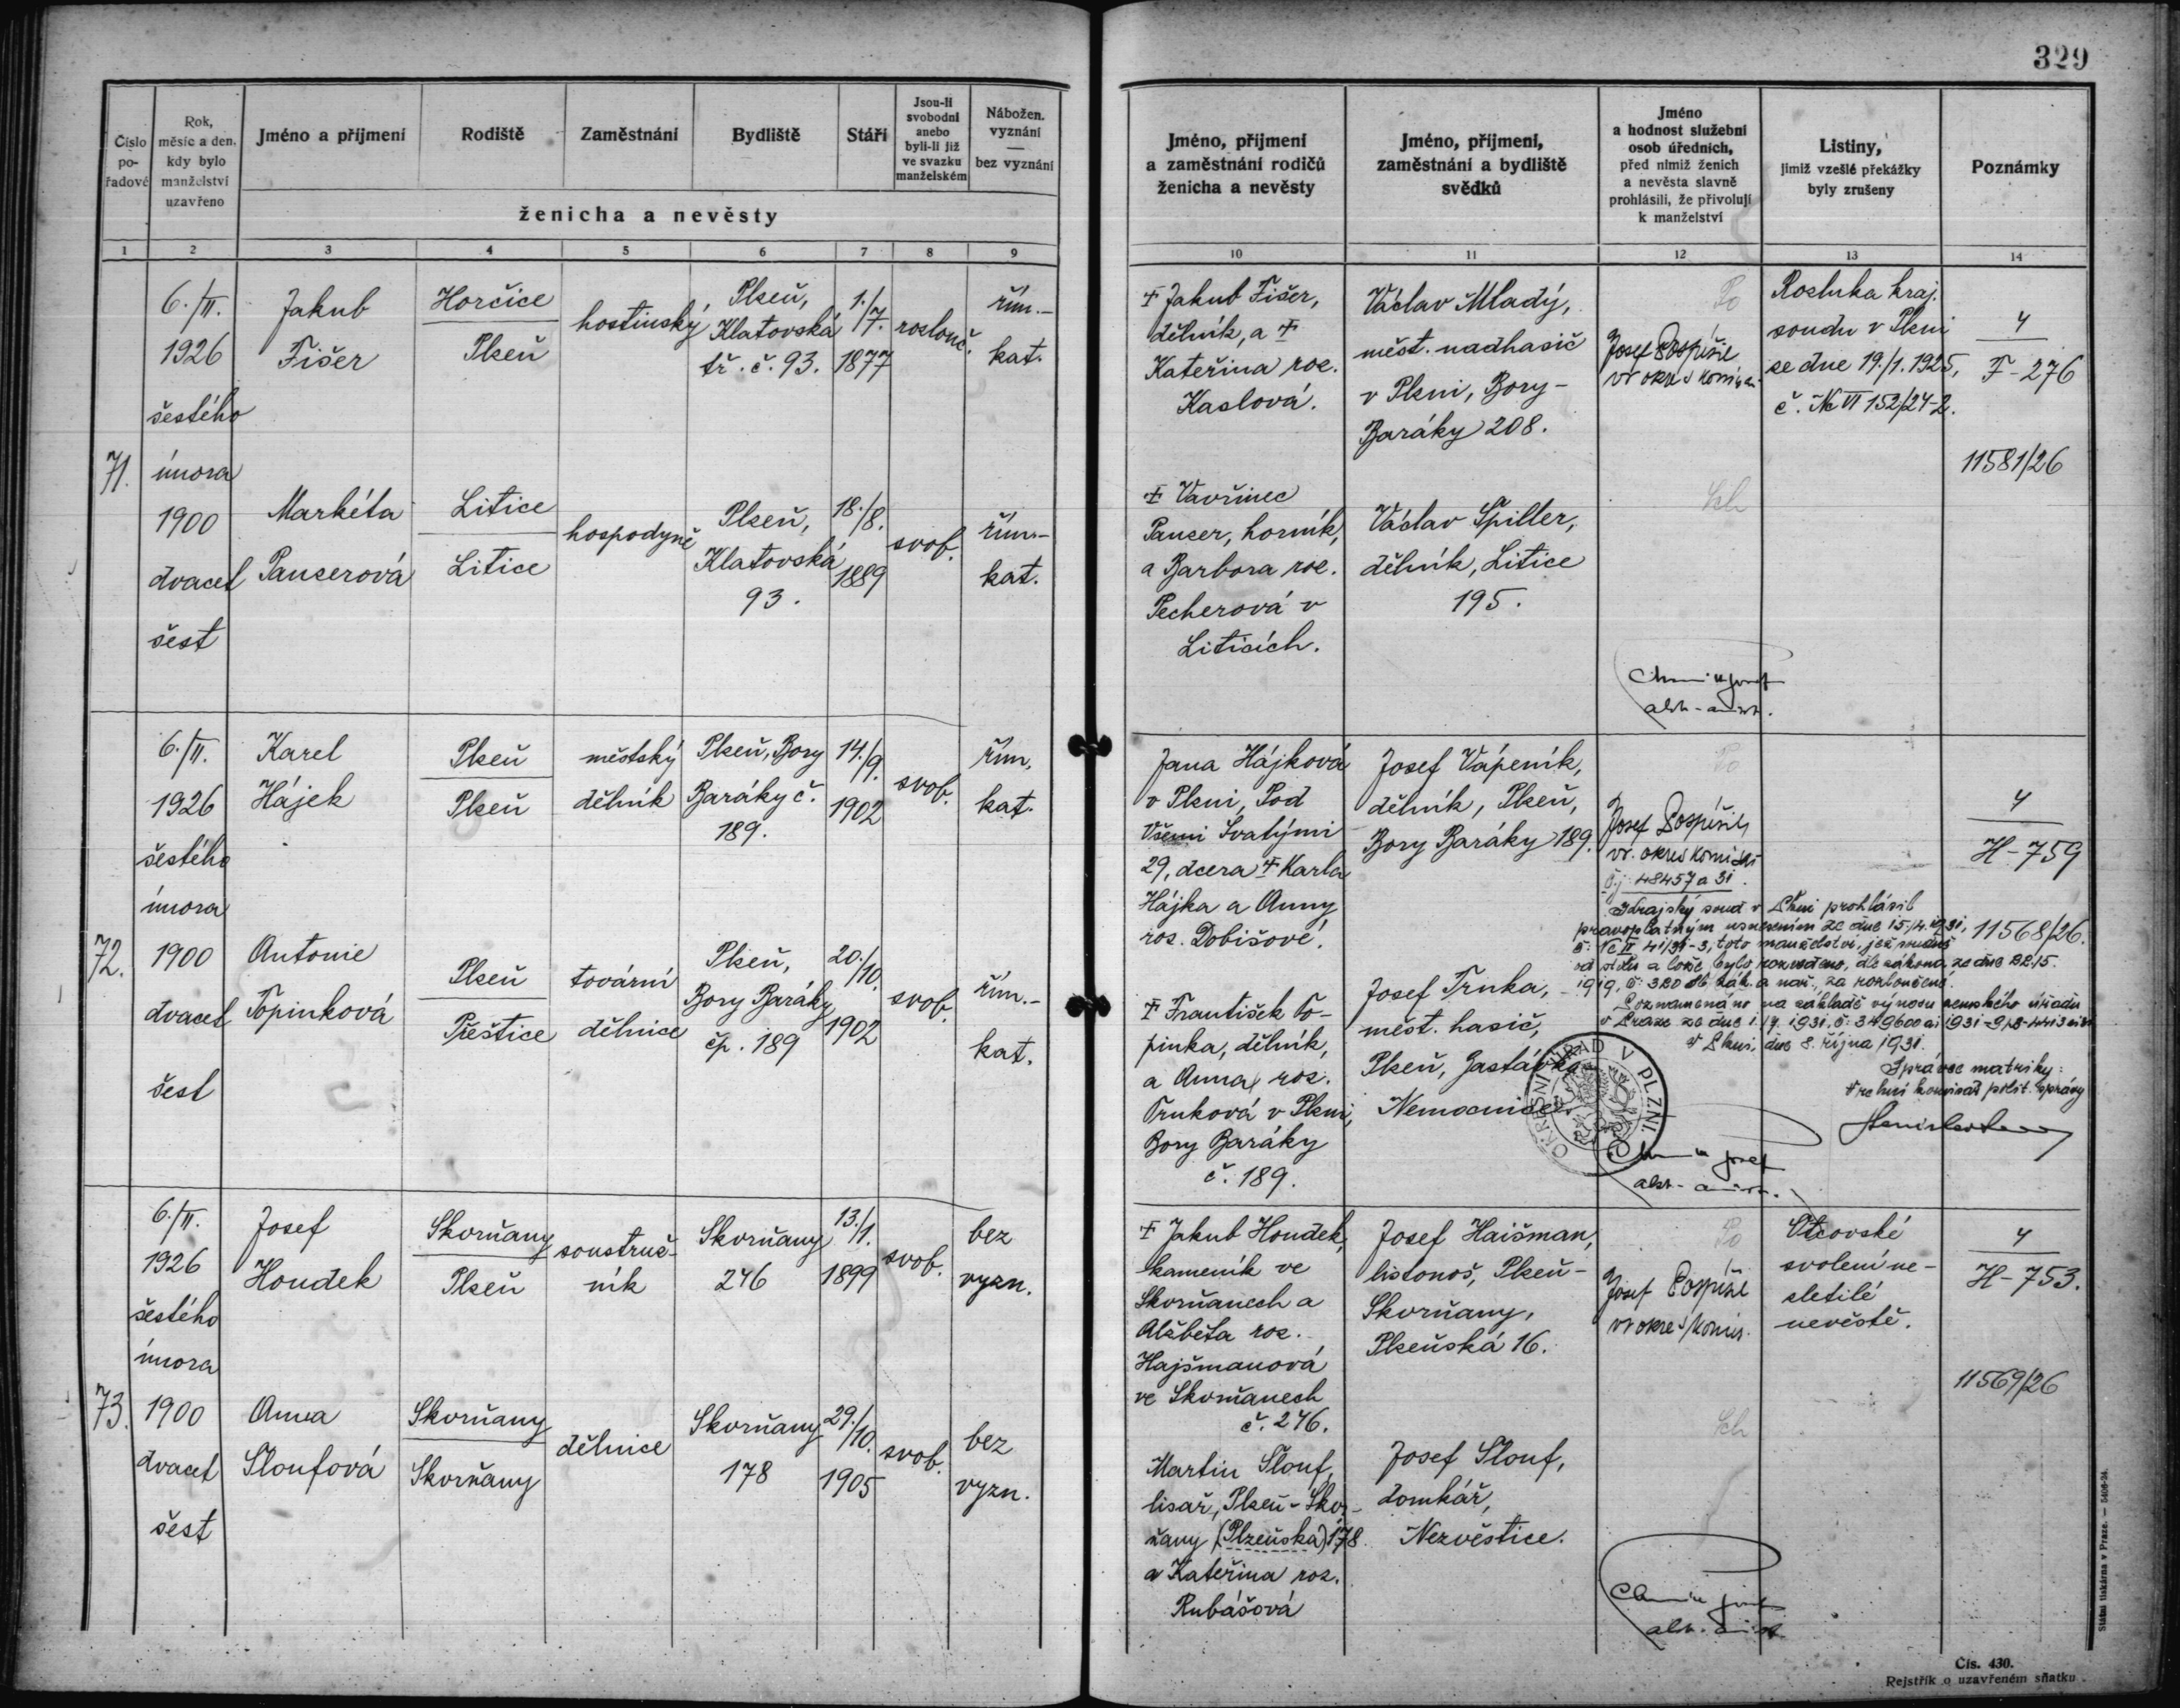 329
Číslo pořadové
Rok, měsíc a den, kdy bylo manželství uzavřeno
Jméno a příjmení
Rodiště
Zaměstnání
Bydliště
Stáří
Jsou-li svobodni anebo byli-li již ve svazku manželském
Nábožen. vyznání — bez vyznání
ženicha a nevěsty
Jméno, příjmení a zaměstnání rodičů ženicha a nevěsty
Jméno, příjmení, zaměstnání a bydliště svědků
Jméno a hodnost služební osob úředních, před nimiž ženich a nevěsta slavně prohlásili, že přivolují k manželství
Listiny, jimiž vzešlé překážky byly zrušeny
Poznámky
1 2 3 4 5 6 7 8 9 10 11 12 13 14
71.
6./II.
1926
šestého
února
1900
dvacet
šest
Jakub
Fišer
Horčice
Plzeň
hostinský
Plzeň,
Klatovská
tř. č. 93.
1./7.
1877
rozlouč.
řím.-
kat.
Markéta
Panzerová
Litice
Litice
hospodyně
Plzeň,
Klatovská
93.
18./8.
1889
svob.
řím.-
kat.
† Jakub Fišer,
dělník, a †
Kateřina roz.
Kaslová.
† Vavřinec
Panzer, horník,
a Barbora roz.
Pecherová v
Liticích.
Václav Mladý,
měst. nadhasič
v Plzni, Bory-
Baráky 208.
Václav Špiller,
dělník, Litice
195.
Po
Josef Pospíšil
vr okres komisař
Sch
Rozluka kraj.
soudu v Plzni
ze dne 19./1. 1925,
č. Nc VI 152/24-2.
4
F-276
11581/26
72.
6./II.
1926
šestého
února
1900
dvacet
šest
Karel
Hájek
Plzeň
Plzeň
městský
dělník
Plzeň, Bory
Baráky č.
189.
14./9.
1902
svob.
řím.
kat.
Antonie
Topinková
Plzeň
Přeštice
tovární
dělnice
Plzeň,
Bory Baráky
čp. 189
20./10.
1902
svob.
řím.-
kat.
Jana Hájková
v Plzni, Pod
Všemi Svatými
29, dcera † Karla
Hájka a Anny
roz. Dobišové.
† František To-
pinka, dělník,
a Anna roz.
Trnková v Plzni,
Bory Baráky
č. 189.
Josef Vápeník,
dělník, Plzeň,
Bory Baráky 189.
Josef Trnka,
měst. hasič,
Plzeň, Zastávka
Nemocnice
Po
Josef Pospíšil
vr. okres komisař
Čj. 48457 a 31.
Krajský soud v Plzni prohlásil
pravoplatným usnesením ze dne 15./4. 1931,
č. Nc II 41/31-3, toto manželství, jež soudně
od stolu a lože bylo rozvedeno, dle zákona ze dne 22.5.
1919, č. 320 sb. zák. a nař., za rozloučené.
Poznamenáno na základě výnosu zemského úřadu
v Praze ze dne
V Plzni, dne 8. října 1931.
Správce matriky:
Vrchní komisař polit. správy
OKRESNÍ ÚŘAD V PLZNI.
4
H-759
11568/26.
73.
6./II.
1926
šestého
února
1900
dvacet
šest
Josef
Houdek
Skvrňany
Plzeň
soustruž-
ník
Skvrňany
246
13./1.
1899
svob.
bez
vyzn.
Anna
Sloufová
Skvrňany
Skvrňany
dělnice
Skvrňany
178
29./10.
1905
svob.
bez
vyzn.
† Jakub Houdek,
kameník ve
Skvrňanech a
Alžběta roz.
Hajšmanová
ve Skvrňanech
č. 246.
Martin Slouf,
lisař, Plzeň-Skvr-
ňany (Plzeňská) 178
a Kateřina roz.
Rubášová
Josef Haišman,
listonoš, Plzeň-
Skvrňany,
Plzeňská 16.
Josef Slouf,
domkář,
Nezvěstice.
Po
Josef Pospíšil
vr okres komis.
Sch
Otcovské
svolení ne-
zletilé
nevěstě.
4
H-753.
11569/26
Státní tiskárna v Praze. — 5406-24.
Čís. 430.
Rejstřík o uzavřeném sňatku